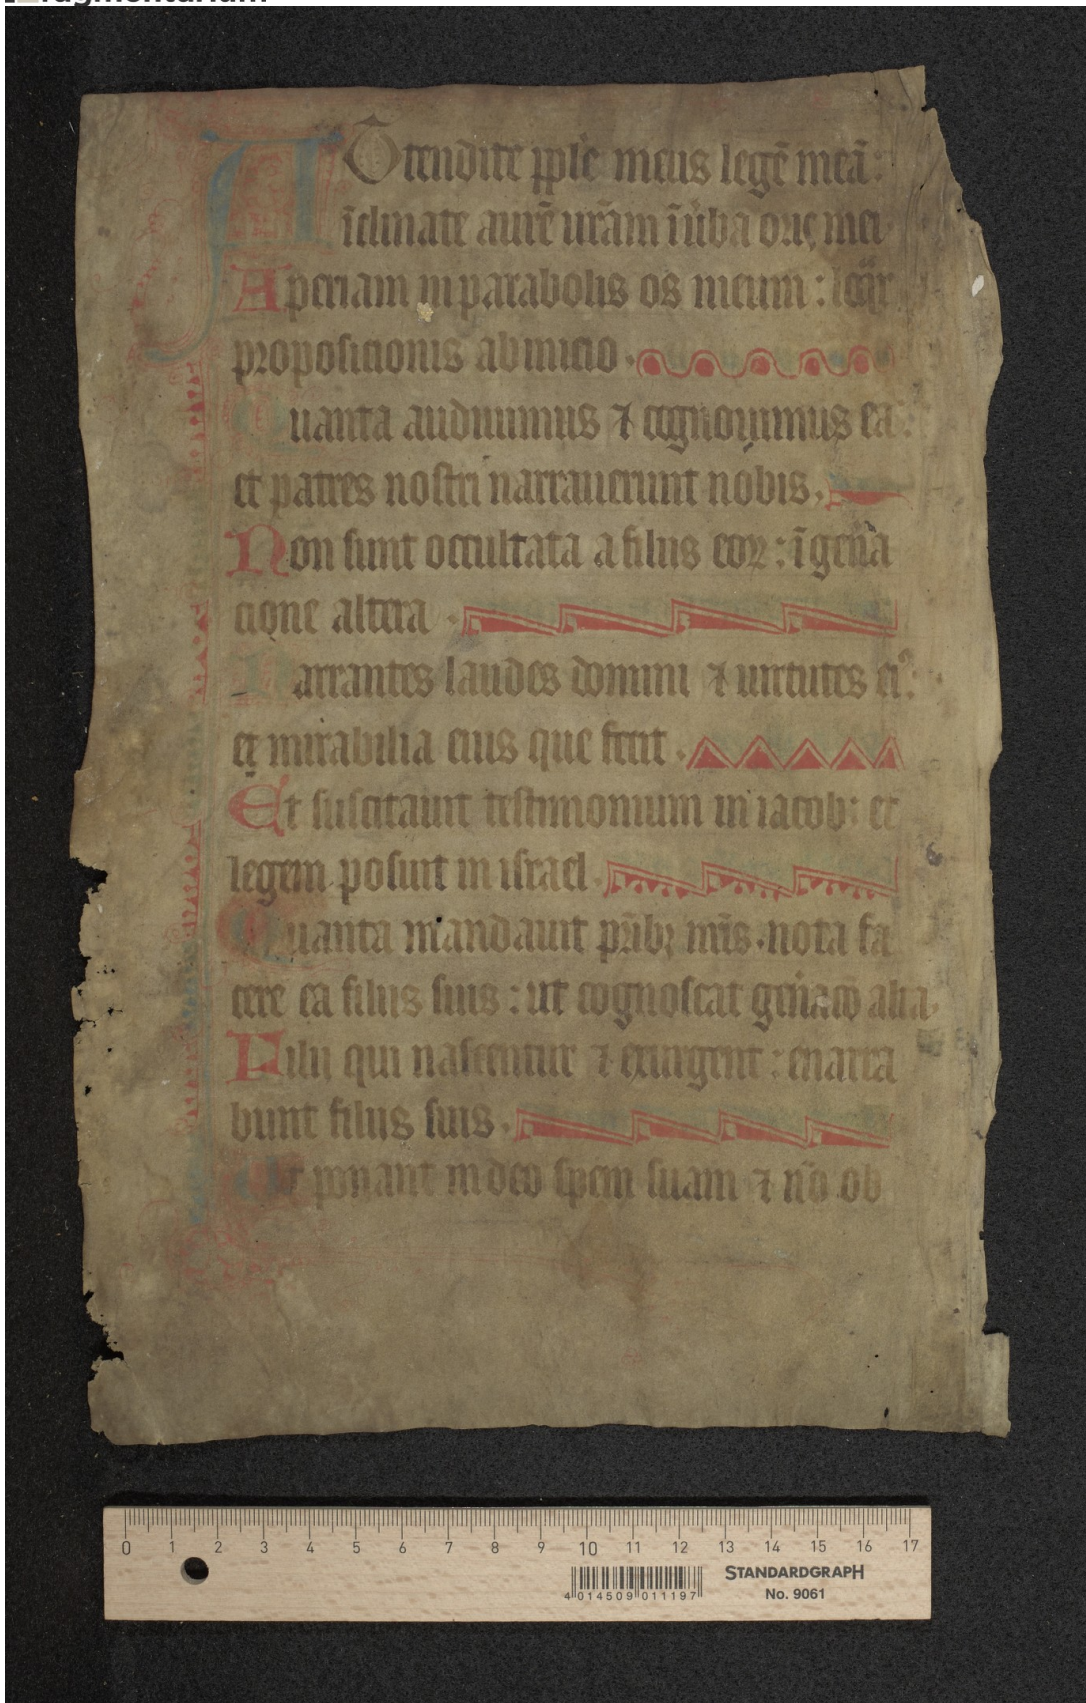 fragmentarium
ATtendite pple meus legē meā :
īclinate aurē ur̄am ī ūba oris mei
Aperiam in parabolis os meum : loq̄r
proposicionis ab inicio .
Quanta audiuimus ⁊ cognouimus ea :
et patres nostri narrauerunt nobis .
Non sunt occultata a filiis eoꝝ : ī gen̄a
cione altera .
Narrantes laudes domini ⁊ uirtutes eiꝰ :
et mirabilia eius que fecit .
Et suscitauit testimonium in iacob : et
legem posuit in israel .
Quanta mandauit pr̄ibꝫ nr̄is . nota fa
cere ea filiis suis : ut cognoscat gen̄acō alt̄a .
Filii qui nascentur ⁊ exurgent : enarra
bunt filiis suis .
Ut ponant in deo spem suam ⁊ nō ob
0 1 2 3 4 5 6 7 8 9 10 11 12 13 14 15 16 17
4 014509 011197
STANDARDGRAPH
No. 9061